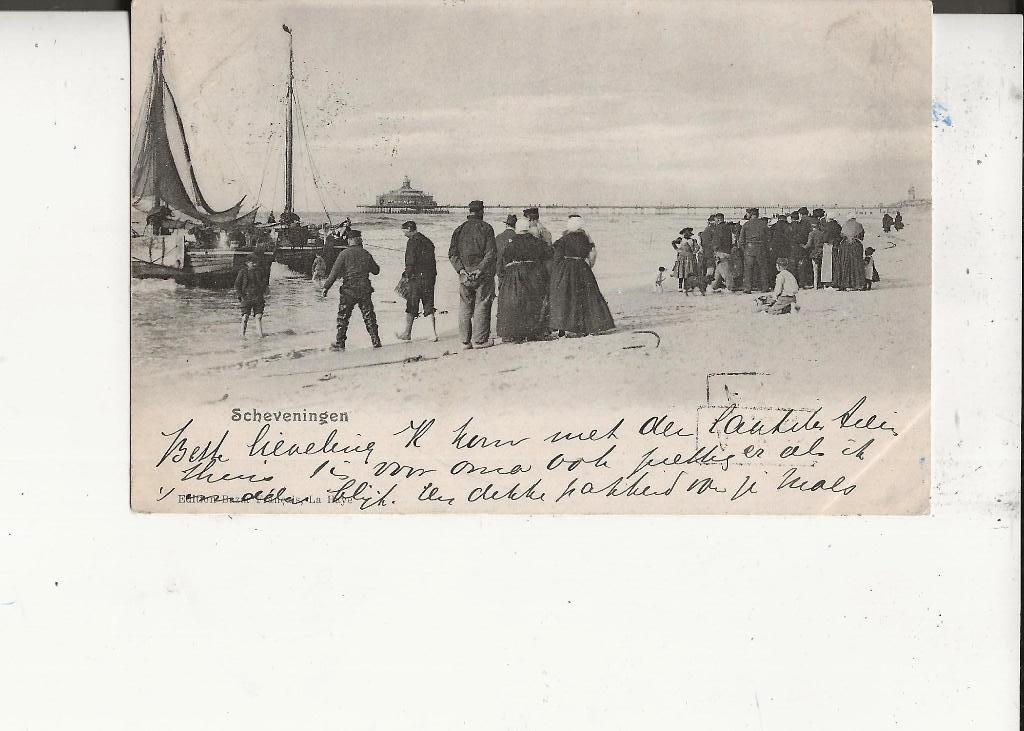 Scheveningen
Beste lieveling Ik kom met den laatsten trein
thuis is voor oma ook prettiger als ik
's avonds blijf. Een dikke pakkerd van je Moes
Editeur Bazar Français, La Haye